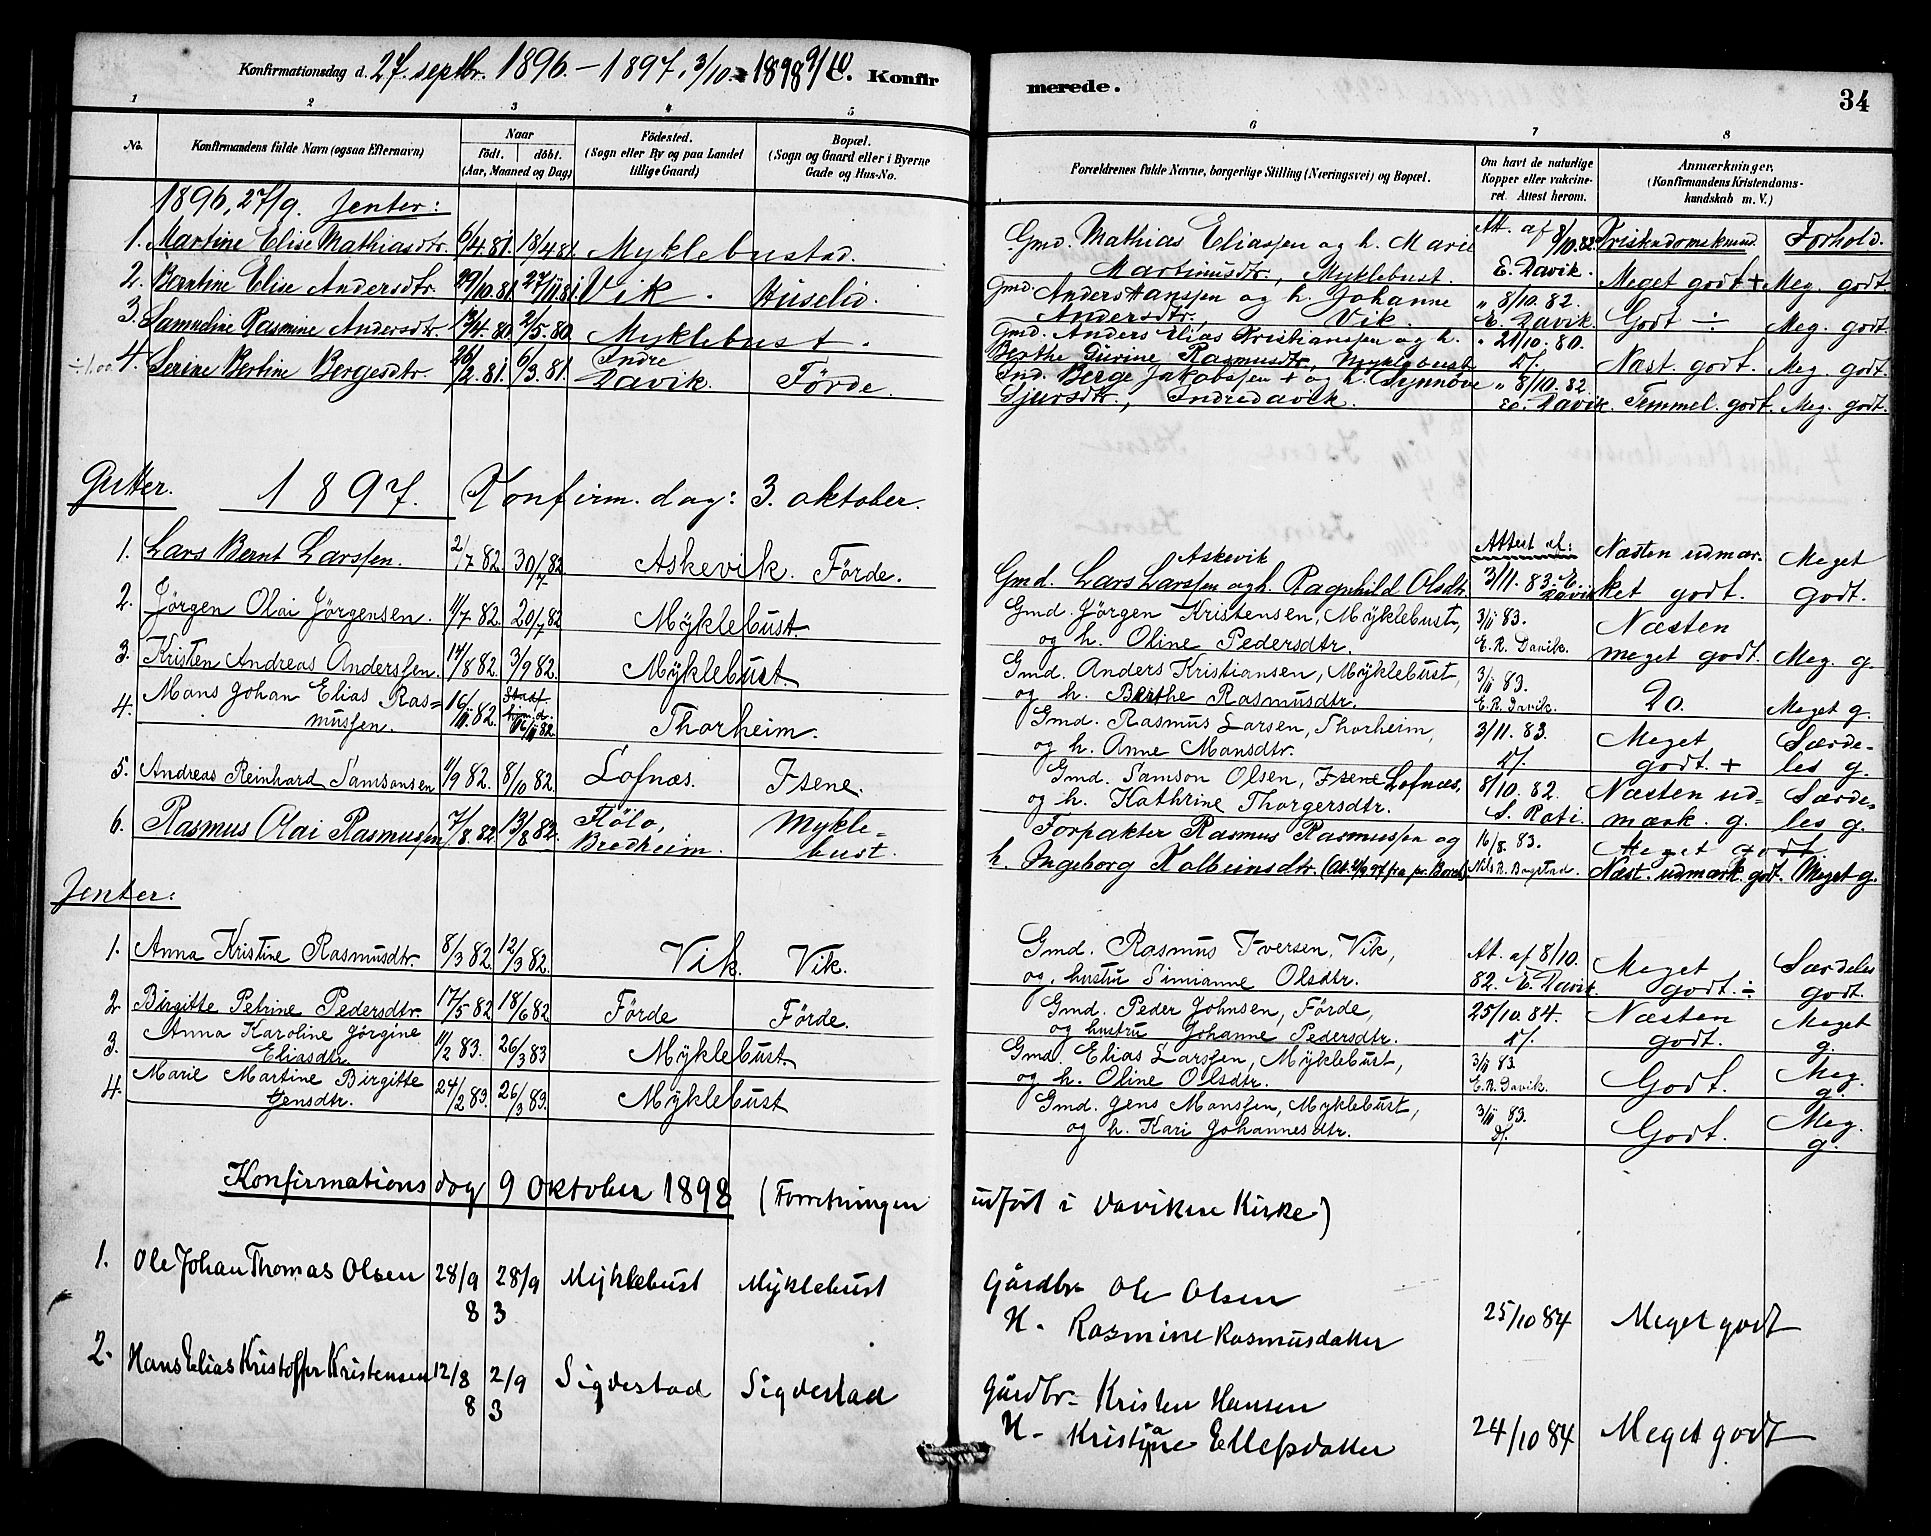 Konfirmationsdag d. 27. septbr. 1896. – 1897, 3/10. 1898 9/10. C. Konfirmerede. 34
1 2 3 4 5 6 7 8
No. Konfirmandens fulde Navn (ogsaa Efternavn) Naar født. døbt. (Aar, Maaned og Dag) Födested. (Sogn eller By og paa Landet tillige Gaard) Bopæl. (Sogn og Gaard eller i Byerne Gade og Hus-No. Forældrenes fulde Navne, borgerlige Stilling (Næringsvei) og Bopæl. Om havt de naturlige Kopper eller vakcineret. Attest herom. Anmærkninger. (Konfirmandens Kristendomskundskab m. V.)
1896, 27/9. Jenter:
1. Martine Elise Mathiasdtr. 6/4.81. 18/4.81 Myklebustad. Gmd. Mathias Eliassen og h. Marie At. af 8/10.82 Kristendomskund. Forhold.
Martinusdtr., Myklebust. E. Davik. Meget godt + Meg. godt.
2. Berntine Elise Andersdtr. 29/10.81 27/11.81 Vik. Huselid. Gmd. Anders Hanssen og h. Johanne " 8/10. 82.
Andersdtr., Vik. E. Davik. Godt ÷ Meg. godt.
3. Samueline Rasmine Andersdtr. 13/4.80. 2/5.80. Myklebust. Gmd. Anders Elias Kristianssen og h. " 21/10. 80.
Berthe Gurine Rasmusdtr., Myklebust D/. Næst. godt. Meg. godt.
÷ 1.00 4. Serine Bertine Bergesdtr. 26/2.81. 6/3.81. Indre Davik. Förde. Ind. Berge Jakobssen + og h. Synnöve " 8/10. 82.
Sjursdtr., Indredavik. E. Davik. Temmel. godt. Meg. godt.
Gutter. 1897. Konfirm. dag: 3. oktober.
1. Lars Bernt Larssen. 2/7 82. 30/7 82 Askevik. Förde. Askevik Attest af: Næsten udmær- Meget
Gmd. Lars Larssen og h. Ragnhild Olsdtr. 3/11. 83. E. Davik ket godt. godt.
2. Jörgen Olai Jörgensen. 11/7 82. 20/7 82 Mÿklebust. Gmd. Jörgen Kristensen, Mÿklebust, 3/11 83. Næsten
og h. Oline Pedersdtr. E. R. Davik. meget godt. Meg. g.
3. Kristen Andreas Anderssen. 14/8 82. 3/9 82. Mÿklebust. Gmd. Anders Kristiansen, Mÿklebust, 3/11 83.
og h. Berthe Rasmusdtr. E. R. Davik. Do. Meget g.
4. Mons Johan Elias Ras- 16/11.82. 16/11 82 Thorheim. Gmd. Rasmus Larsen, Thorheim, 3/11. 83. Meget Særde-
mussen. og h. Anne Monsdtr. D/. godt. + les g.
5. Andreas Reinhard Samsonsen 11/9 82. 8/10 82. Lofnæs. Isene. Gmd. Samson Olsen, Isene Lofnæs, 8/10. 82. Næsten ud- Særde-
og h. Kathrine Thorgersdtr. S. Roti. mærk. g. les g.
6. Rasmus Olai Rasmussen 7/8.82 13/8 82. Flölo, Bredheim. Mykle- Forpakter Rasmus Rasmussen og 16/8. 83. Meget godt.
bust. h. Ingeborg Kolbeinsdtr. Nils R. Bogstad. Næst. udmærk. godt. Meget g.
Jenter:
1. Anna Kristine Rasmusdtr. 8/3 82. 12/3 82. Vik. Vik. Gmd. Rasmus Iversen, Vik, At. af 8/10. Meget Særdeles
og hustru Simianne Olsdtr. 82. E. Davik. godt. ÷ godt.
2. Birgitte Petrine Pedersdtr. 17/5 82 18/6 82 Förde Förde. Gmd. Peder Johnsen, Förde, 25/10. 84. Næsten Meget
og hustru Johanne Pedersdtr. D/. godt. g.
3. Anna Karoline Jörgine 11/2 83. 26/3 83 Mÿklebust Gmd. Elias Larssen, Mÿklebust, 3/11 83
Eliasdtr. og h. Oline Olsdtr. E. R. Davik. Godt. Meg. g.
4. Marie Martine Birgitte 24/2 83. 26/3 83. Mÿklebust Gmd. Jens Monssen, Myklebust, 3/11 83.
Jensdtr. og h. Kari Johannesdtr. D/. Godt. Meg. g.
Konfirmationsdag 9 Oktober 1898 (Forretningen udfört i Daviken Kirke)
1. Ole Johan Thomas Olsen 28/9 8 28/9 3 Myklebust Myklebust Gårdbr. Ole Olsen
H. Rasmine Rasmusdatter 25/10 84 Meget godt
2. Hans Elias Kristoffer Kristensen 12/8 8 2/9 3 Sigdestad Sigdestad Gårdbr. Kristen Hansen
H. Kristiane Ellefsdatter 24/10 84 Meget godt